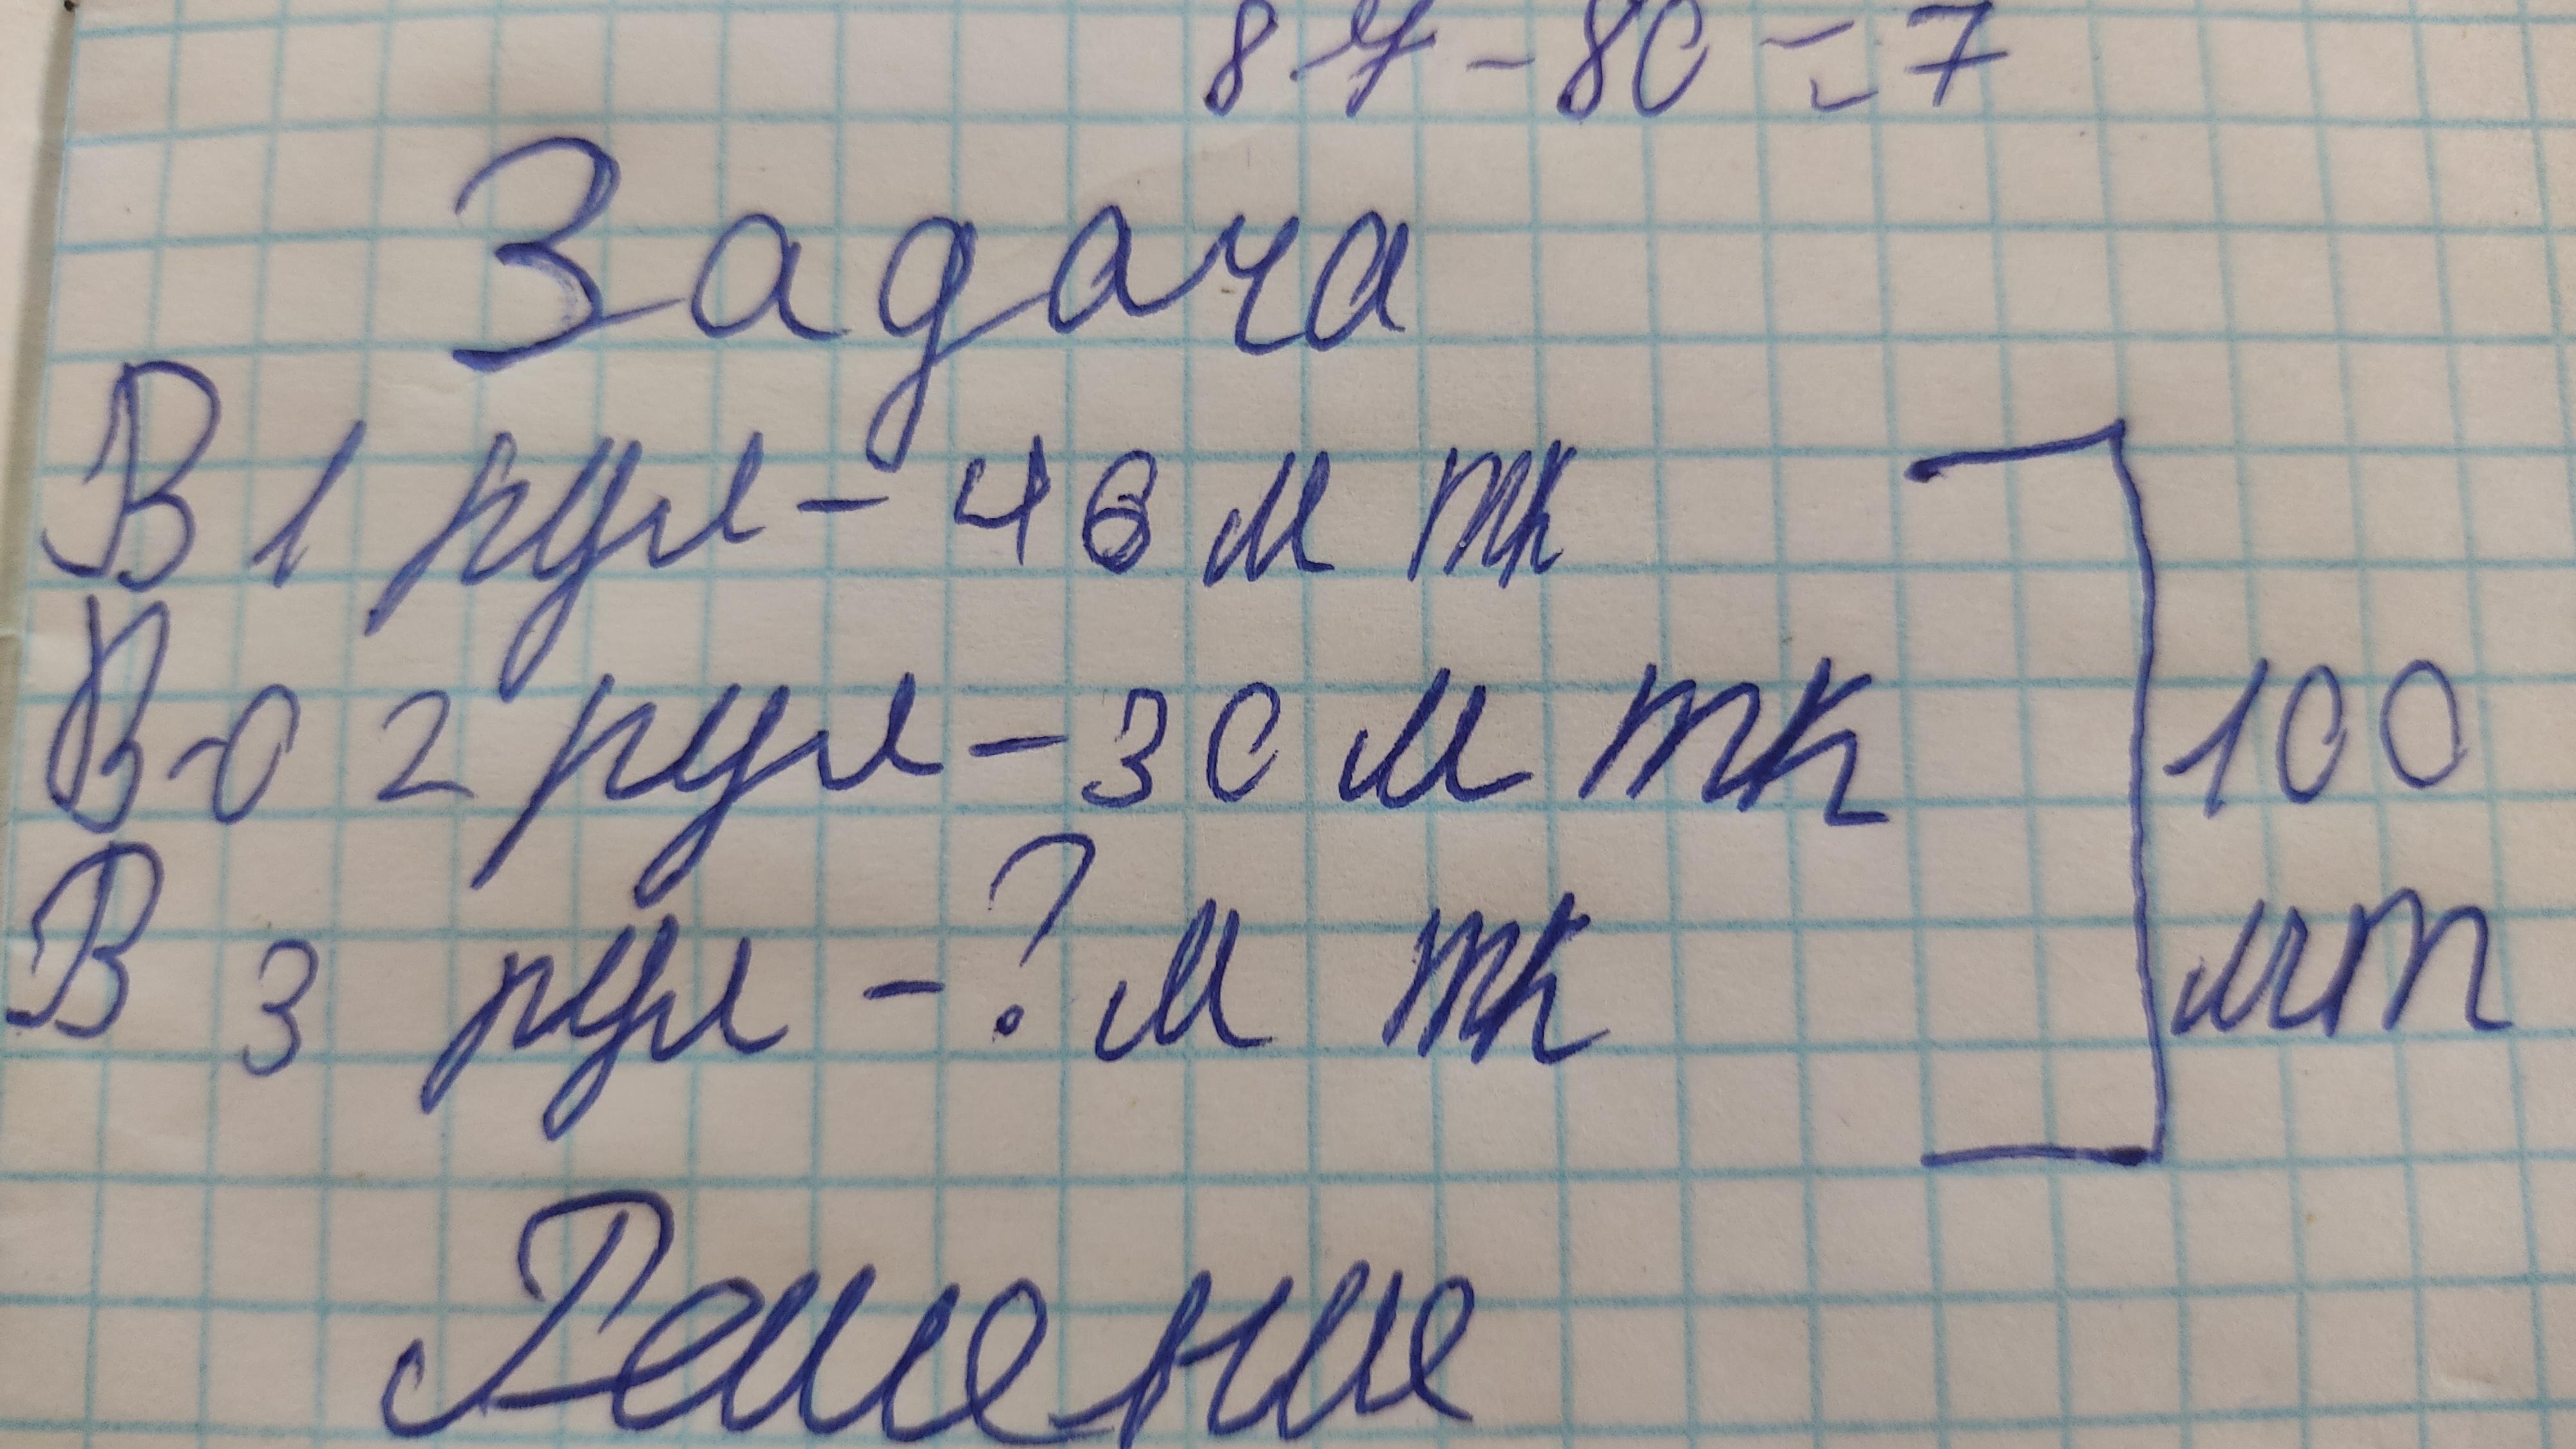 87-80=7
Задача
В 1 рул-46 м тк
В-о 2 рул-30 м тк
В 3 рул-? м тк
100
мт
Решение